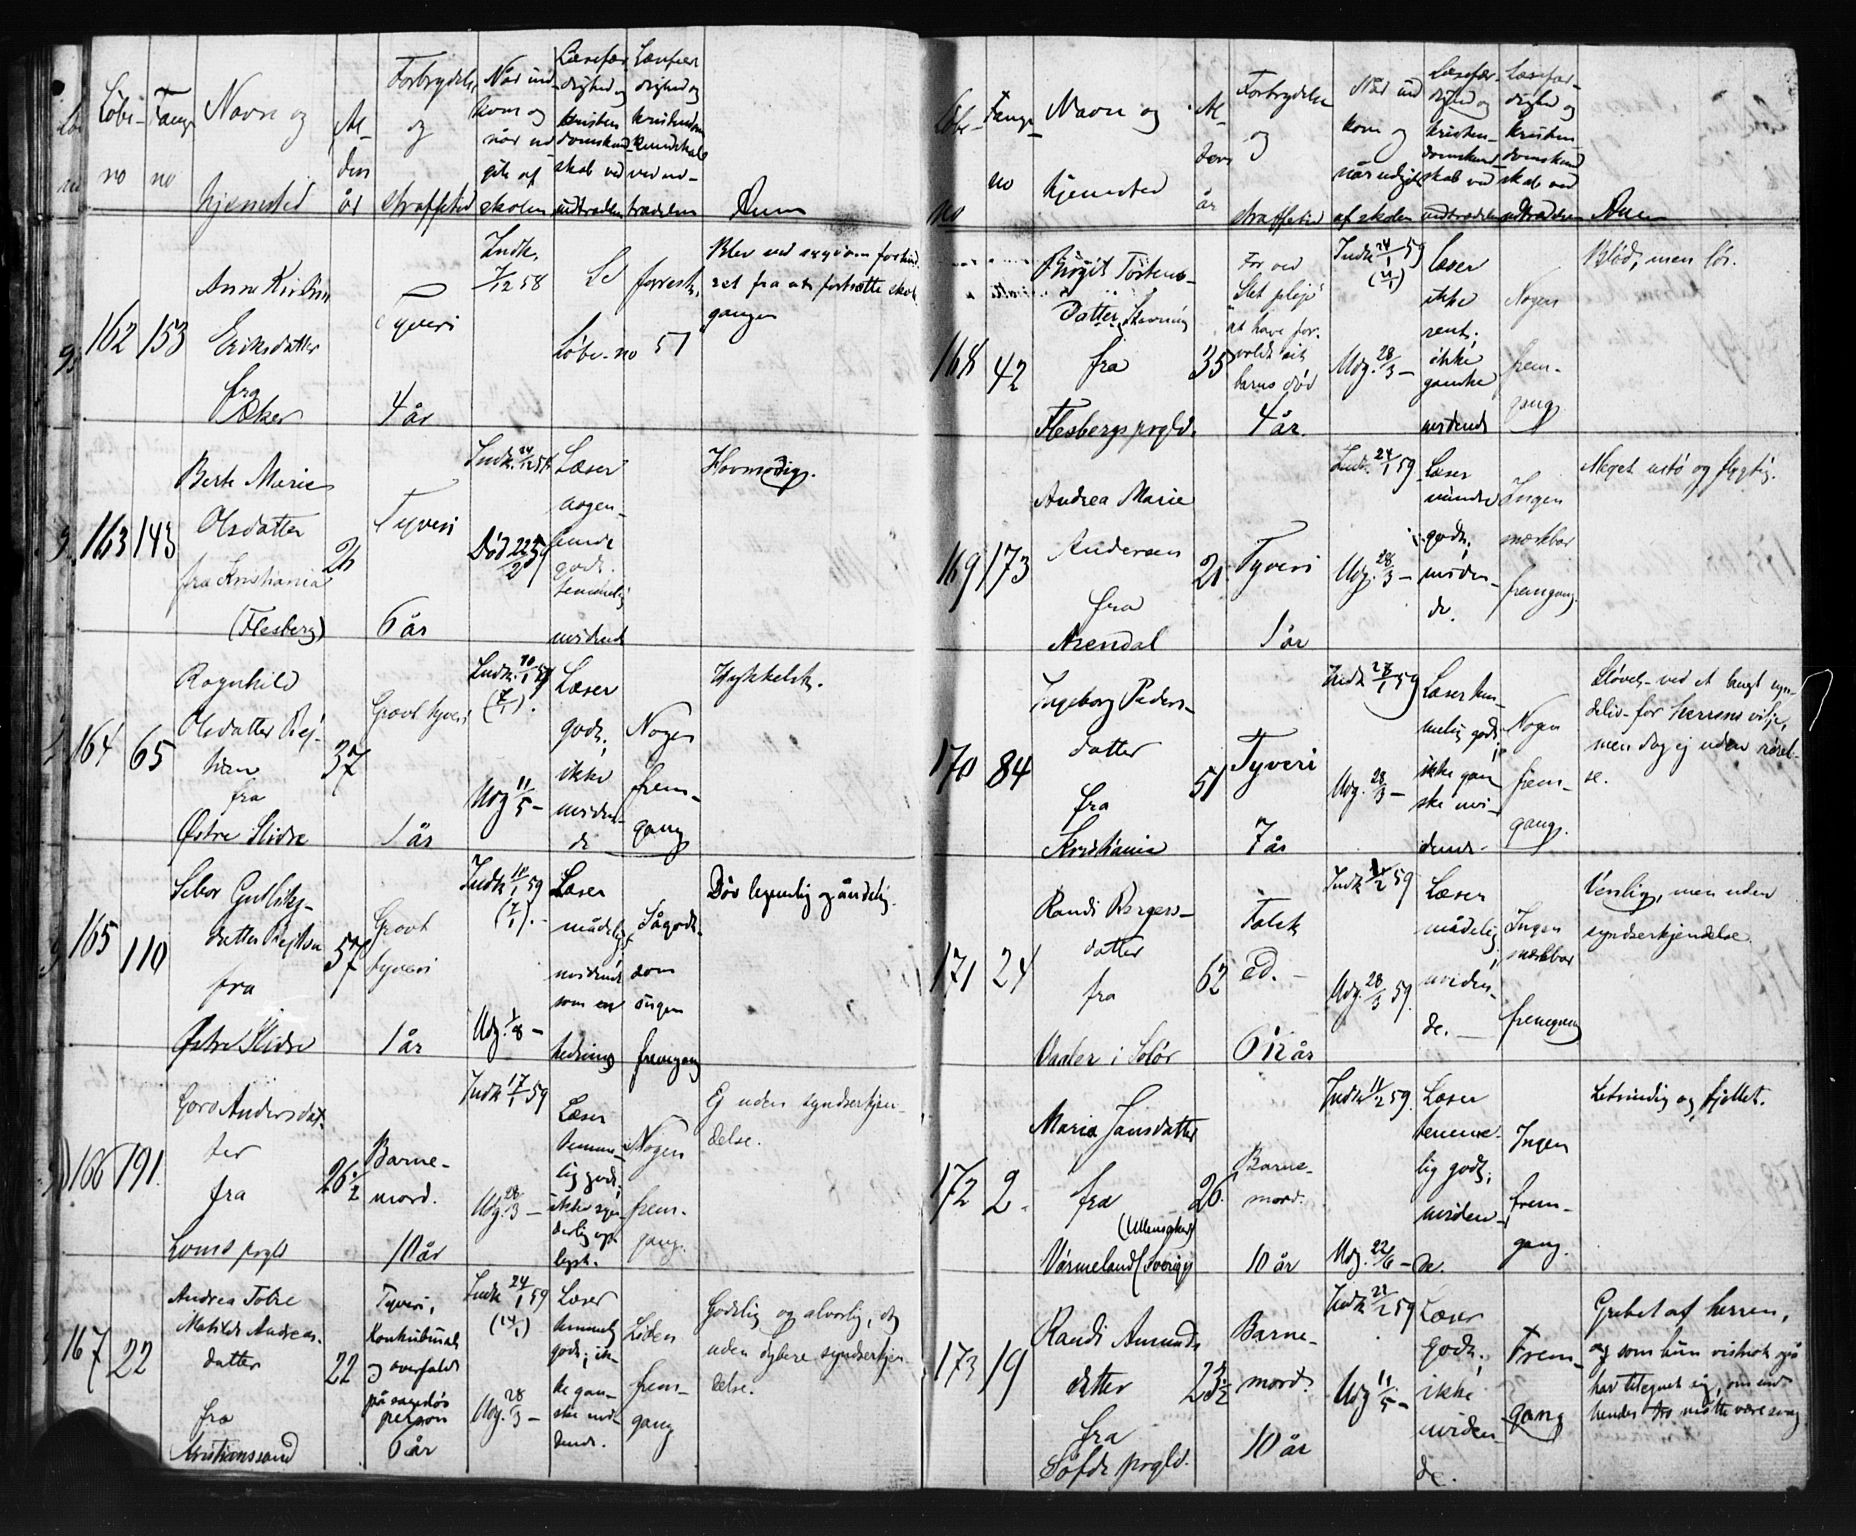 Løbe-
no
Fange
no
Navn og
hjemsted
Al-
ders
år
Forbrydelse
og
straffetid
Når ind
kom og
når ud
gik af
skolen
Læsefær
dighed og
kristen
domskund
skab ved
indtræden
Læsefær
dighed og
kristendom
kundskab
ved ud-
trædelsen
Anm
162
153
Anne Kirstine
Eriksdatter
fra
Aker
Tyveri
4 år
Indk.
7/12 58
Se
forrest.
Løbe-no 57
Blev ved sygdom forhind
ret fra at fortsætte skole
gangen
163
143
Berte Marie
Olsdatter
fra Kristiania
(Flesberg)
26
Tyveri
6 år
Indk. 24/12 58
Død 22/2 59
Læser
nogen-
lunde
godt.
temmelig
uvidende
Hovmodig.
164
65
Ragnhild
Olsdatter Rej-
hen
fra
Østre Slidre
37
Grovt tyveri
1 år
Indk. 10/1 59
(7/1).
Udg 11/5 –
Læser
godt;
ikke
uviden-
de
Nogen
frem-
gang
Hykkelsk.
165
110
Sebor Gulliks-
datter
fra
Østre Slidre
57
Grovt
tyveri
1 år
Indk 10/1 59
(7/1).–
Udg. 1/8 –
Læser
mådelig;
uvidende
som en
hedning
Sågodt
som
ingen
fremgang
Døv legemlig og åndelig.
166
191.
Goro Andersdat-
ter
fra
Loms prgld
26 1/2
Barne-
mord.
10 år
Indk 17/1 59
Udg. 28/3 –
Læser
temme-
lig godt;
ikke syn
derlig op-
lyst.
Nogen
frem-
gang.
Ej uden syndserkjen-
delse.
167
22
Andrea Tobre
Matilde Andreas-
datter
fra
Kristianssand
22
Tyveri,
Konkubinat
og overfald
på sagesløs
person
6 år
Indk 24/1 59
(14/1)
Udg. 28/3 –
Læser
temmelig
godt; ik-
ke gan-
ske uvi-
dende.
Liden
frem-
gang
Godslig og alvorlig, dog
uden dybere syndserkjen
delse.
Løbe-
no
Fange
no
Navn og
hjemsted
Al-
ders
år
Forbrydelse
og
straffetid
Når ind
kom og
når udgik
af skolen
Læsefær-
dighed og
kristen-
domskund
skab ved
indtrædelsen
Læsefær-
dighed og
kristen-
domskund
skab ved
udtrædelsen
Anm
168
42
Birgit Torstens-
datter
fra
Flesbergs prgld.
35
For ved
"Slet pleje"
at have for-
voldt sit
barns død
4 år.
Indk 24/1 59
Udg. 28/3 –
Læser
ikke
rent;
ikke
ganske
uvidende
Nogen
frem-
gang
Blød, men løs.
169
173
Andrea Marie
Andersen
fra
Arendal
21
Tyveri
1 år
Indk. 24/1 59
Udg. 28/3 –
Læser
mindre
godt;
uviden-
de.
Ingen
mærkbar
fremgang.
Meget ustø og flygtig.
170
84
Ingeborg Peders-
datter
fra
Kristiania
51
Tyveri
7 år
Indk 27/1 59
Udg. 28/3 –
Læser tem-
melig godt;
ikke gan
ske uvi-
dende.
Nogen
frem-
gang.
Sløvet ved et langt syn-
deliv for herrens vilje,
men dog ej uden rørel-
se.
171
24
Randi Borgers-
datter
fra
Vaaler i Solør
62
Falsk
ed. –
6 1/2 år
Indk 1/2 59
Udg. 28/3 59.
Læser
mådelig;
uviden-
de. –
Ingen
mærkbar
fremgang
Venlig, men uden
syndserkjendelse.
172
2.
Maria Jansdatter
fra
(Ullensaker)
Värmeland (Sverige)
26.
Barne-
mord.
10 år
Indk 11/2 59.
Udg. 22/6 –
Læser
temme-
lig godt;
uviden-
de.
Ingen
frem-
gang.
Letsindig og fjollet.
173
19
Randi Amunds-
datter
fra
Søfde prgld.
23 1/2
Barne-
mord.
10 år
Indk 21/2 59
Udg 11/5 –
Læser
godt;
ikke
uviden-
de.
Frem-
gang
Grebet af herren,
og som hun vistnok også
har tilegnet sig, om end
hendes tro måtte være svag